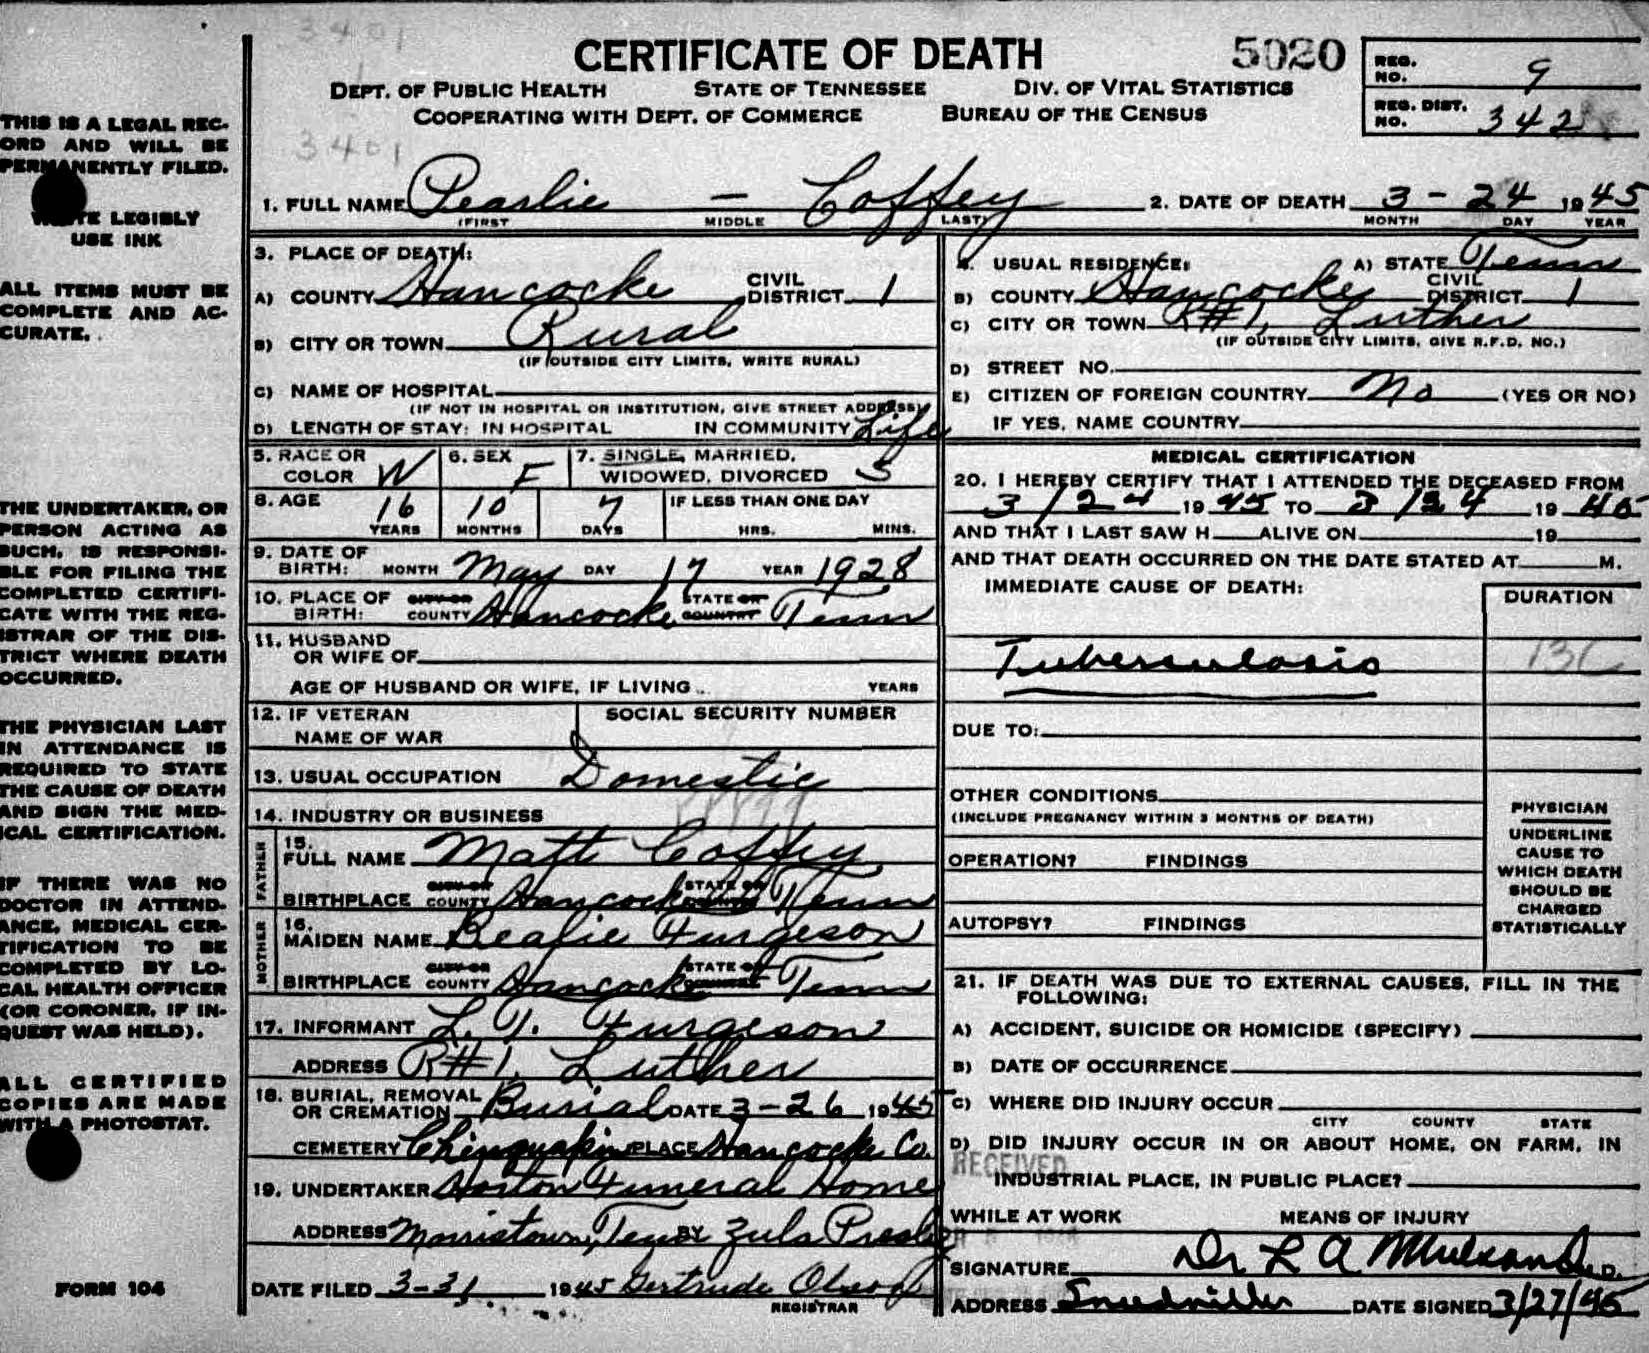 3401
CERTIFICATE OF DEATH 5020
DEPT. OF PUBLIC HEALTH STATE OF TENNESSEE DIV. OF VITAL STATISTICS
COOPERATING WITH DEPT. OF COMMERCE BUREAU OF THE CENSUS
REG. NO. 9
REG. DIST. NO. 342
3401
THIS IS A LEGAL REC-
ORD AND WILL BE
PERMANENTLY FILED.
LEGIBLY
USE INK
ALL ITEMS MUST BE
COMPLETE AND AC-
CURATE.
THE UNDERTAKER, OR
PERSON ACTING AS
SUCH, IS RESPONSI-
BLE FOR FILING THE
COMPLETED CERTIFI-
CATE WITH THE REG-
ISTRAR OF THE DIS-
TRICT WHERE DEATH
OCCURRED.
THE PHYSICIAN LAST
IN ATTENDANCE IS
REQUIRED TO STATE
THE CAUSE OF DEATH
AND SIGN THE MED-
ICAL CERTIFICATION.
IF THERE WAS NO
DOCTOR IN ATTEND-
ANCE, MEDICAL CER-
TIFICATION TO BE
COMPLETED BY LO-
CAL HEALTH OFFICER
(OR CORONER, IF IN-
QUEST WAS HELD).
ALL CERTIFIED
COPIES ARE MADE
WITH A PHOTOSTAT.
FORM 104
1. FULL NAME Pearlie — Coffey 2. DATE OF DEATH 3 - 24 1945
(FIRST MIDDLE LAST) MONTH DAY YEAR
3. PLACE OF DEATH:
A) COUNTY Hancocke CIVIL DISTRICT 1
B) CITY OR TOWN Rural
(IF OUTSIDE CITY LIMITS, WRITE RURAL)
C) NAME OF HOSPITAL
(IF NOT IN HOSPITAL OR INSTITUTION, GIVE STREET ADDRESS)
D) LENGTH OF STAY: IN HOSPITAL IN COMMUNITY Life
5. RACE OR COLOR W 6. SEX F 7. SINGLE, MARRIED, WIDOWED, DIVORCED S
8. AGE 16 10 7 IF LESS THAN ONE DAY
YEARS MONTHS DAYS HRS. MINS.
9. DATE OF BIRTH: MONTH May DAY 17 YEAR 1928
10. PLACE OF BIRTH: CITY OR COUNTY Hancocke STATE OR COUNTRY Tenn
11. HUSBAND
OR WIFE OF
AGE OF HUSBAND OR WIFE, IF LIVING YEARS
12. IF VETERAN SOCIAL SECURITY NUMBER
NAME OF WAR
13. USUAL OCCUPATION Domestic
14. INDUSTRY OR BUSINESS
FATHER
15. FULL NAME Matt Coffey
BIRTHPLACE CITY OR COUNTY Hancocke STATE OR Tenn
MOTHER
16. MAIDEN NAME Beafie Furgeson
BIRTHPLACE CITY OR COUNTY Hancocke STATE OR Tenn
17. INFORMANT L. T. Furgeson
ADDRESS R#1, Luther
18. BURIAL, REMOVAL OR CREMATION Burial DATE 3-26 1945
CEMETERY Chinquapin PLACE Hancocke Co.
19. UNDERTAKER Horton Funeral Home
ADDRESS Morristown, Tenn BY Zula Presley
DATE FILED 3-31 1945 Gertrude
REGISTRAR
4. USUAL RESIDENCE: A) STATE Tenn
B) COUNTY Hancocke CIVIL DISTRICT 1
C) CITY OR TOWN R#1, Luther
(IF OUTSIDE CITY LIMITS, GIVE R.F.D. NO.)
D) STREET NO.
E) CITIZEN OF FOREIGN COUNTRY No (YES OR NO)
IF YES, NAME COUNTRY
MEDICAL CERTIFICATION
20. I HEREBY CERTIFY THAT I ATTENDED THE DECEASED FROM
3/24 1945 TO 3/24 1945
AND THAT I LAST SAW H ALIVE ON 19
AND THAT DEATH OCCURRED ON THE DATE STATED AT M.
IMMEDIATE CAUSE OF DEATH: DURATION
Tuberculosis 13C
DUE TO:
OTHER CONDITIONS
(INCLUDE PREGNANCY WITHIN 3 MONTHS OF DEATH)
OPERATION? FINDINGS
AUTOPSY? FINDINGS
PHYSICIAN
UNDERLINE
CAUSE TO
WHICH DEATH
SHOULD BE
CHARGED
STATISTICALLY
21. IF DEATH WAS DUE TO EXTERNAL CAUSES, FILL IN THE
FOLLOWING:
A) ACCIDENT, SUICIDE OR HOMICIDE (SPECIFY)
B) DATE OF OCCURRENCE
C) WHERE DID INJURY OCCUR
CITY COUNTY STATE
D) DID INJURY OCCUR IN OR ABOUT HOME, ON FARM, IN
RECEIVED
INDUSTRIAL PLACE, IN PUBLIC PLACE?
WHILE AT WORK MEANS OF INJURY
SIGNATURE Dr L A M.D.
ADDRESS Sneedville DATE SIGNED 3/27/45